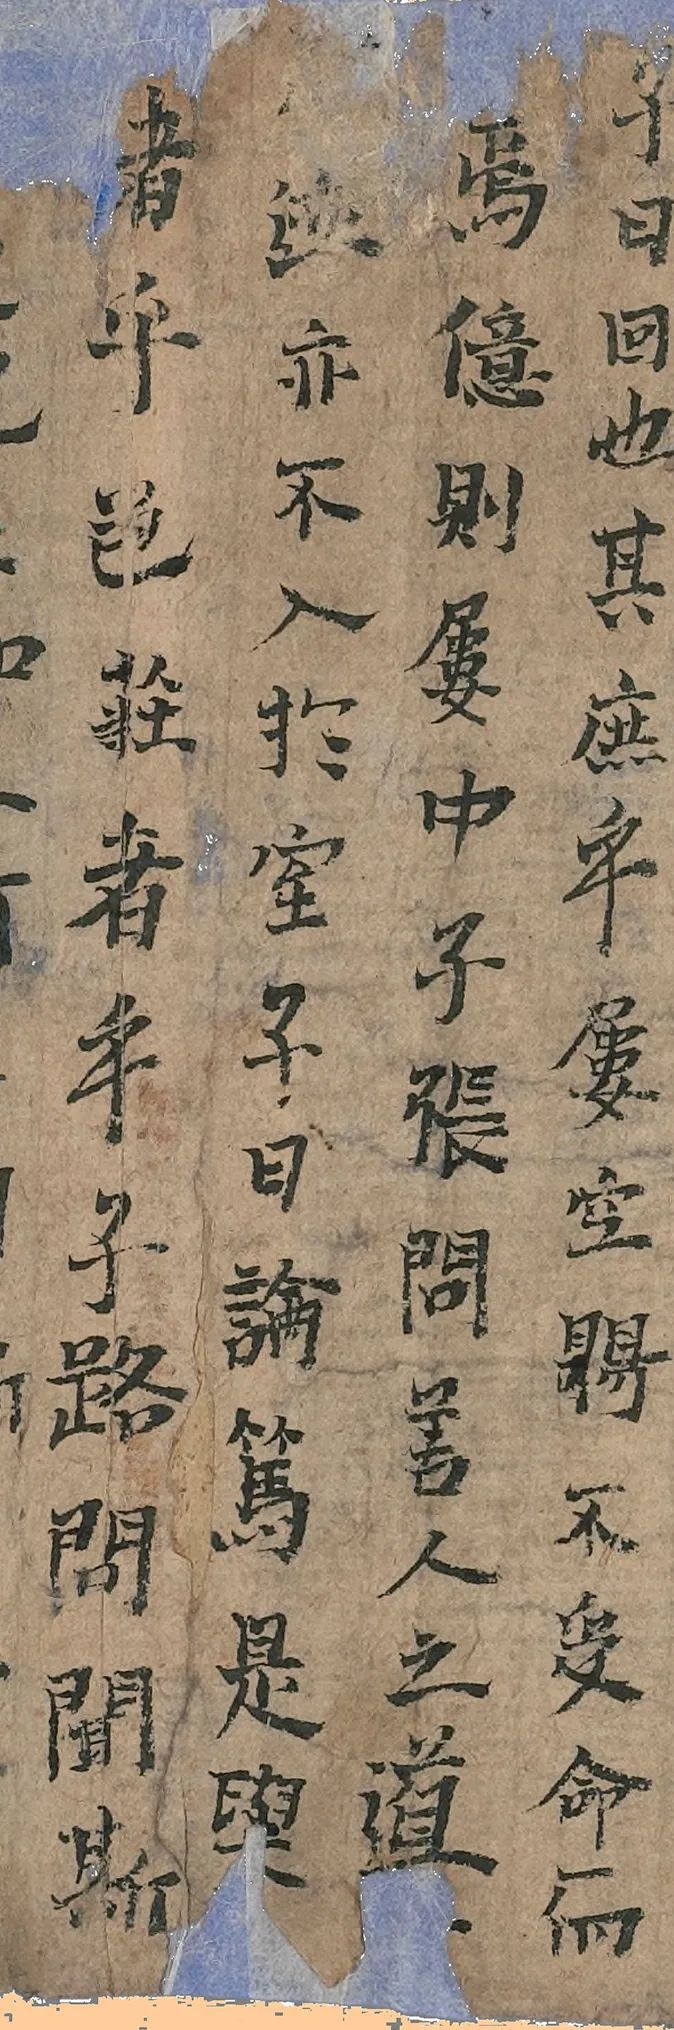 子曰回也其庶乎屢空賜不受命而
焉億則屢中子張問善人之道
迹亦不入於室子曰論篤是與
者乎色莊者乎子路問聞斯